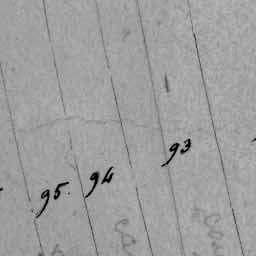 95. 94 93